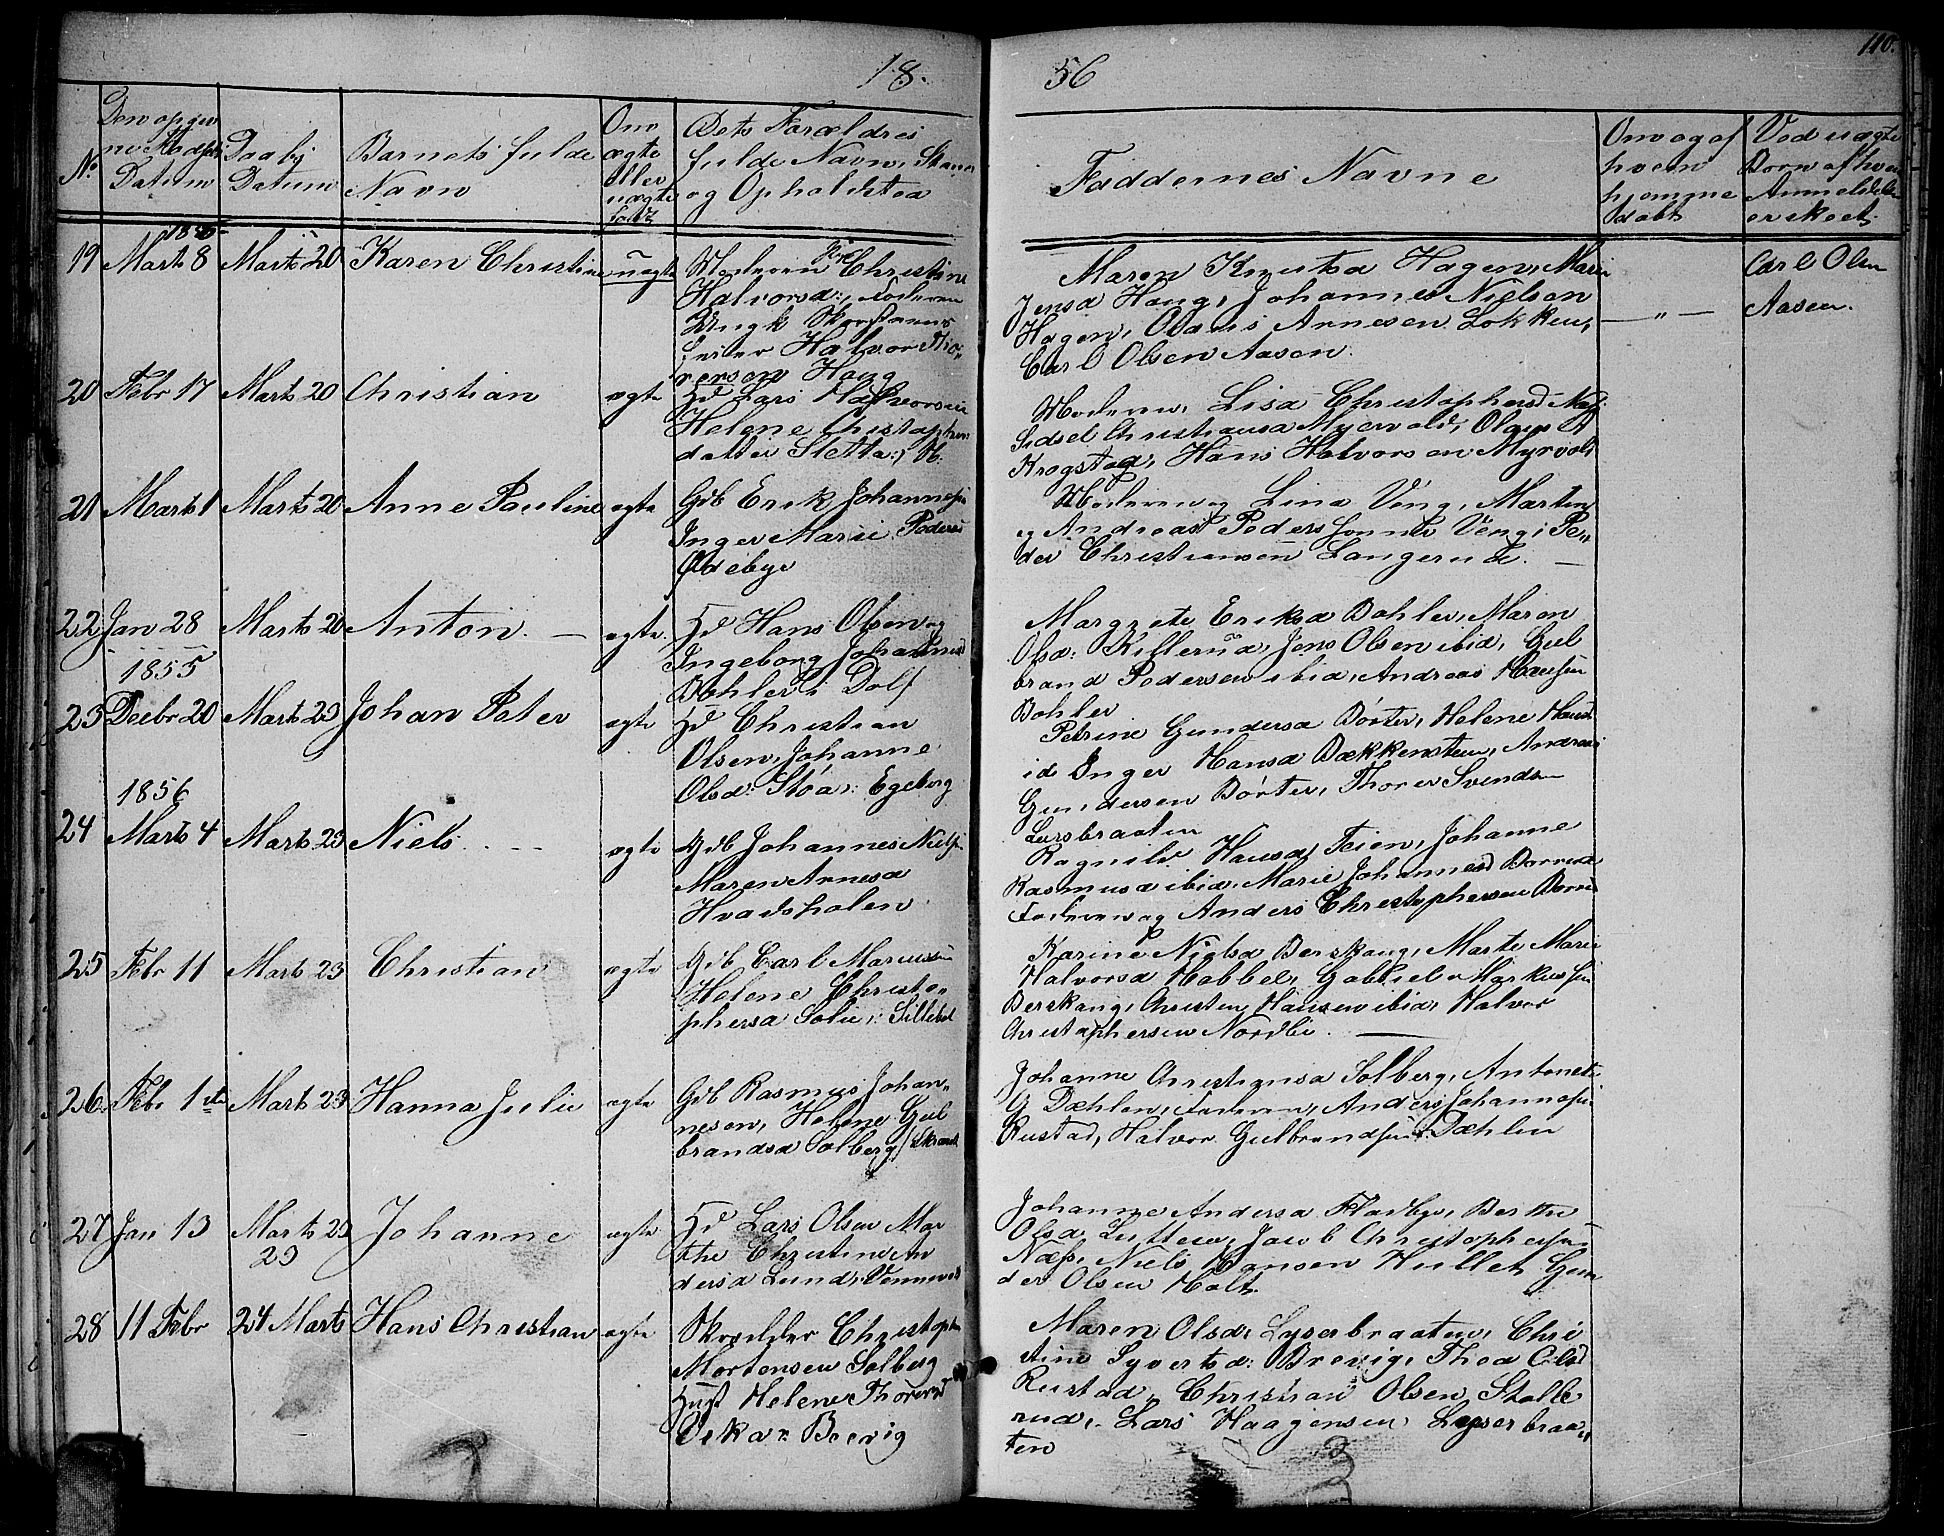 18.
56
110.
No
Den opgivne Fødsels Datum
Daabs Datum
Barnets fulde Navn
Om ægte eller uægte født
Dets Forældres fulde Navn, Stand og Opholdsted
Faddernes Navne
Om og af hvem hjemme døbt
Ved uægte Børn af hvem Anmeldelse er skeet
1856
19 Marts 8 Marts 20 Karen Christine uægte Moderen Christine
Halvorsd:, Faderen
Ungk Skorstens
feier Halvor
Haug
Maren Knutsd Hagen, Mari
Jensd Haug, Johannes Nielsen
Hagen, Olaus Arnesen Løkken,
Carl Olsen Aasen.
— " —
Carl Olsen
Aasen.
20 Febr 17 Marts 20 Christian ægte Hd Lars Halvorsen
Helene Christophers
datter Sletta
Moderen, Lisa Christophersd
Sidsel Christiansd Myrvold, Ole
Krogstad, Hans Halvorsen Myrvold
21 Marts 1 Marts 20 Anne Pauline ægte Gdb Erik Johannesen
Inger Marie Peders
Ødebye
Moderen og Lina Veng, Marten
og Andreas Peders sønner Veng, Pe-
der Christiansen Langerud. —
22 Jan 28 Marts 20 Anton. — ægte. Hd Hans Olsen og
Ingeborg Johannesd
Bøhler i Dølf
Margrete Eriksd Bøhler, Maren
Olsd: Killerud, Jens Olsen ibid, Gul
brand Pedersen ibid, Andreas Hansen
Bøhler
1855
23 Decbr 20 Marts 23 Johan Peter ægte Hd Christian
Olsen, Johanne
Olsd: Støa: Egeborg
Petrine Gundersd Børter, Helene Hansd
id Inger Hansd Bækkensteen, Andreas
Gundersen Børter, Thorer Svendsen
Lysebraaten
1856
24 Marts 4 Marts 23 Niels. — ægte Gdb Johannes Niels
Maren Arnesd
Hvadsholen
Ragnild Hansd, Teien, Johanne
Rasmusd ibid, Marie Johannesd
Faderen og Anders Christophersen
25 Febr 11 Marts 23 Christian ægte Gdb Carl Marcussen
Helene Christo-
phersd Solie,
Karine Nielsd Berskaug, Marte Marie
Halvorsd Habbel, Gabriel Markussen
Berskaug, Christen Hansen ibid, Halvor
Christophersen Nordbie. —
26 Febr 1ste Marts 23 Hanna Julie ægte Gdb Rasmus Johan-
nesen, Helene Gul
brandsd Solberg
Johanne Christiansd Solberg, Antonette
G Dæhlen, Faderen, Anders Johannesen
Rustad, Halvor Gulbrandsen Dæhlen
27 Jan 13 Marts 23 Johanne ægte Hd Lars Olsen Mar
23
the Christine An
dersd Lund,
Johanne Andersd Fladbye, Berthe
Olsd Sutteren, Jacob Christophersen
Næss, Niels Hansen Hullet Gun
der Olsen Holt.
28 11 Febr 24 Marts Hans Christian ægte Skrædder Christopher
Mortensen Solberg
Hust Helene Thorersd
Oskar: Brevig
Maren Olsd, Lyserbraaten, Chri
stine Syvertsd: Brevig, Thea Olsd
Rustad, Christian Olsen Stolle
rud, Lars Haagensen Lyserbraa-
ten